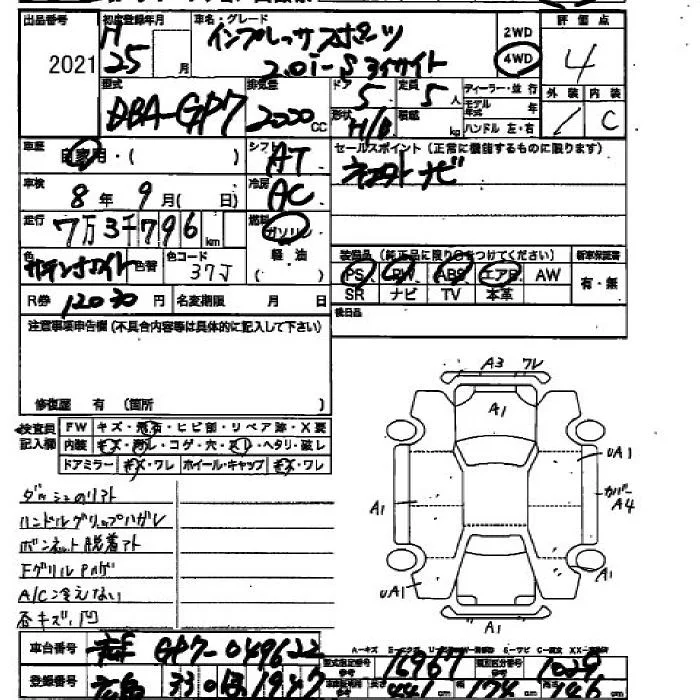 出品番号 初度登録年月 車名・グレード 評価点
2021 H 25 月 インプレッサスポーツ 2WD
2.0i-S アイサイト 4WD 4
型式 排気量 ドア 定員 ディーラー・並行 外装 内装
DBA-GP7 2000 CC 5 5人 モデル年式 年 C
形状 H/B 積載 kg ハンドル 左・右
車歴 自家用・( ) シフト AT セールスポイント(正常に機能するものに限ります)
車検 8年 9月( 日) 冷房 AC ナビ
走行 7万3千796km 燃料 ガソリン
軽油
色 サテンホワイト 色替 色コード 37J
装備品(純正品に限り○をつけてください) 新車保証書
PS PW ABS エアB AW 有・無
SR ナビ TV 本革
R券 12030円 名変期限 月 日
後日品
注意事項申告欄(不具合内容等は具体的に記入して下さい)
修復歴 有(箇所 )
検査員記入欄 FW キズ・飛石・ヒビ割・リペア跡・X要
内装 キズ・汚レ・コゲ・穴・スリ・ヘタリ・破レ
ドアミラー キズ・ワレ ホイール・キャップ キズ・ワレ
A3 ワレ
A1
UA1
カバー A4
A1
UA1
A1
A1
ハンドルグリップハガレ
ボンネット脱着アト
A/C冷えない
各キズ凹
車台番号 GP7-049622
型式指定番号 16967 類別区分番号 1029
登録番号 広島 330 1947
長さ 441cm 幅 174cm 高さ 146cm